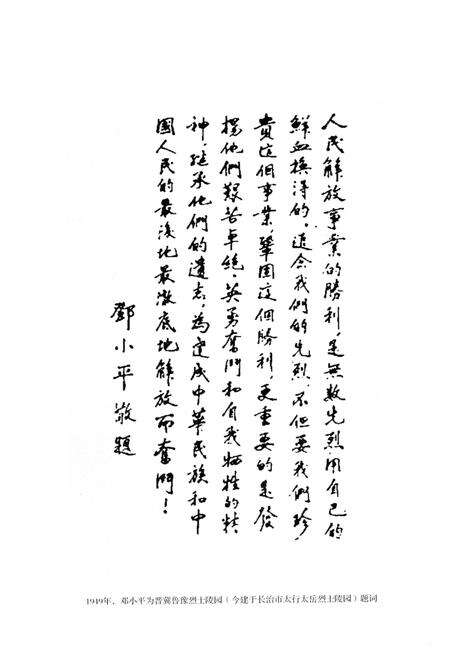 人民解放事業的勝利，是無数先烈用自己的
鮮血換得的。追念我們的先烈，不但要我們珍
貴這個事業，鞏固這個勝利，更重要的是發
揚他們艱苦卓絶，英勇奮鬥和自我牺牲的精
神，継承他們的遺志，為完成中華民族和中
國人民的最後地最澈底地解放而奮鬥！
鄧小平敬題
1949年，邓小平为晋冀鲁豫烈士陵园（今建于长治市太行太岳烈士陵园）题词